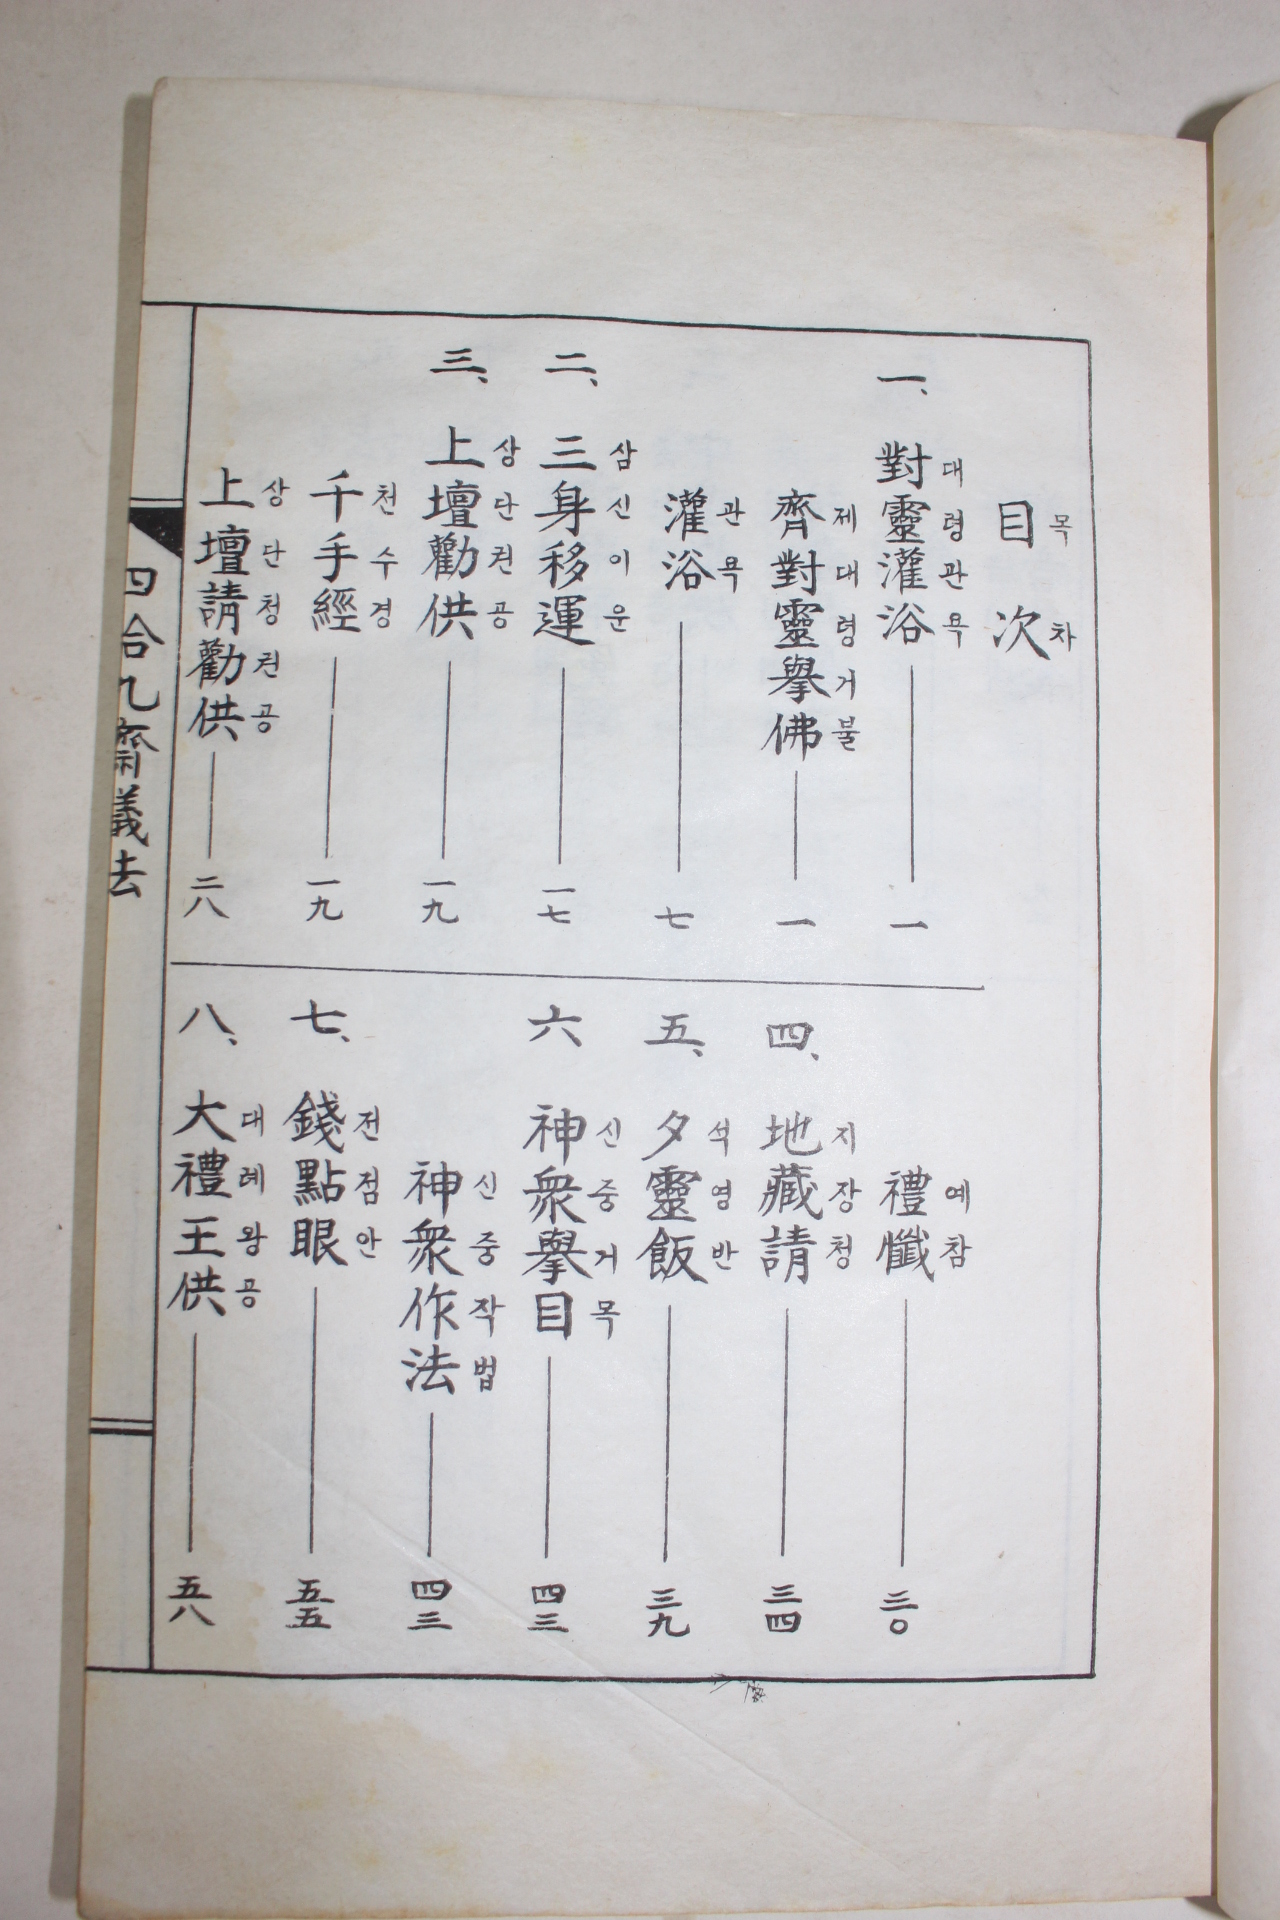 目次 목차
一、對靈灌浴 대령관욕 一
齊對靈擧佛 제대령거불 一
灌浴 관욕 七
二、三身移運 삼신이운 一七
三、上壇勸供 상단권공 一九
千手經 천수경 一九
上壇請勸供 상단청권공 二八
禮懺 예참 三〇
四、地藏請 지장청 三四
五、夕靈飯 석영반 三九
六 神衆擧目 신중거목 四三
神衆作法 신중작법 四三
七、錢點眼 전점안 五五
八、大禮王供 대례왕공 五八
四合九齋義去